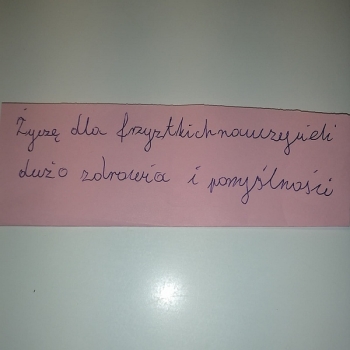 Życzę dla frzystkich nauczycieli
dużo zdrowia i pomyślności